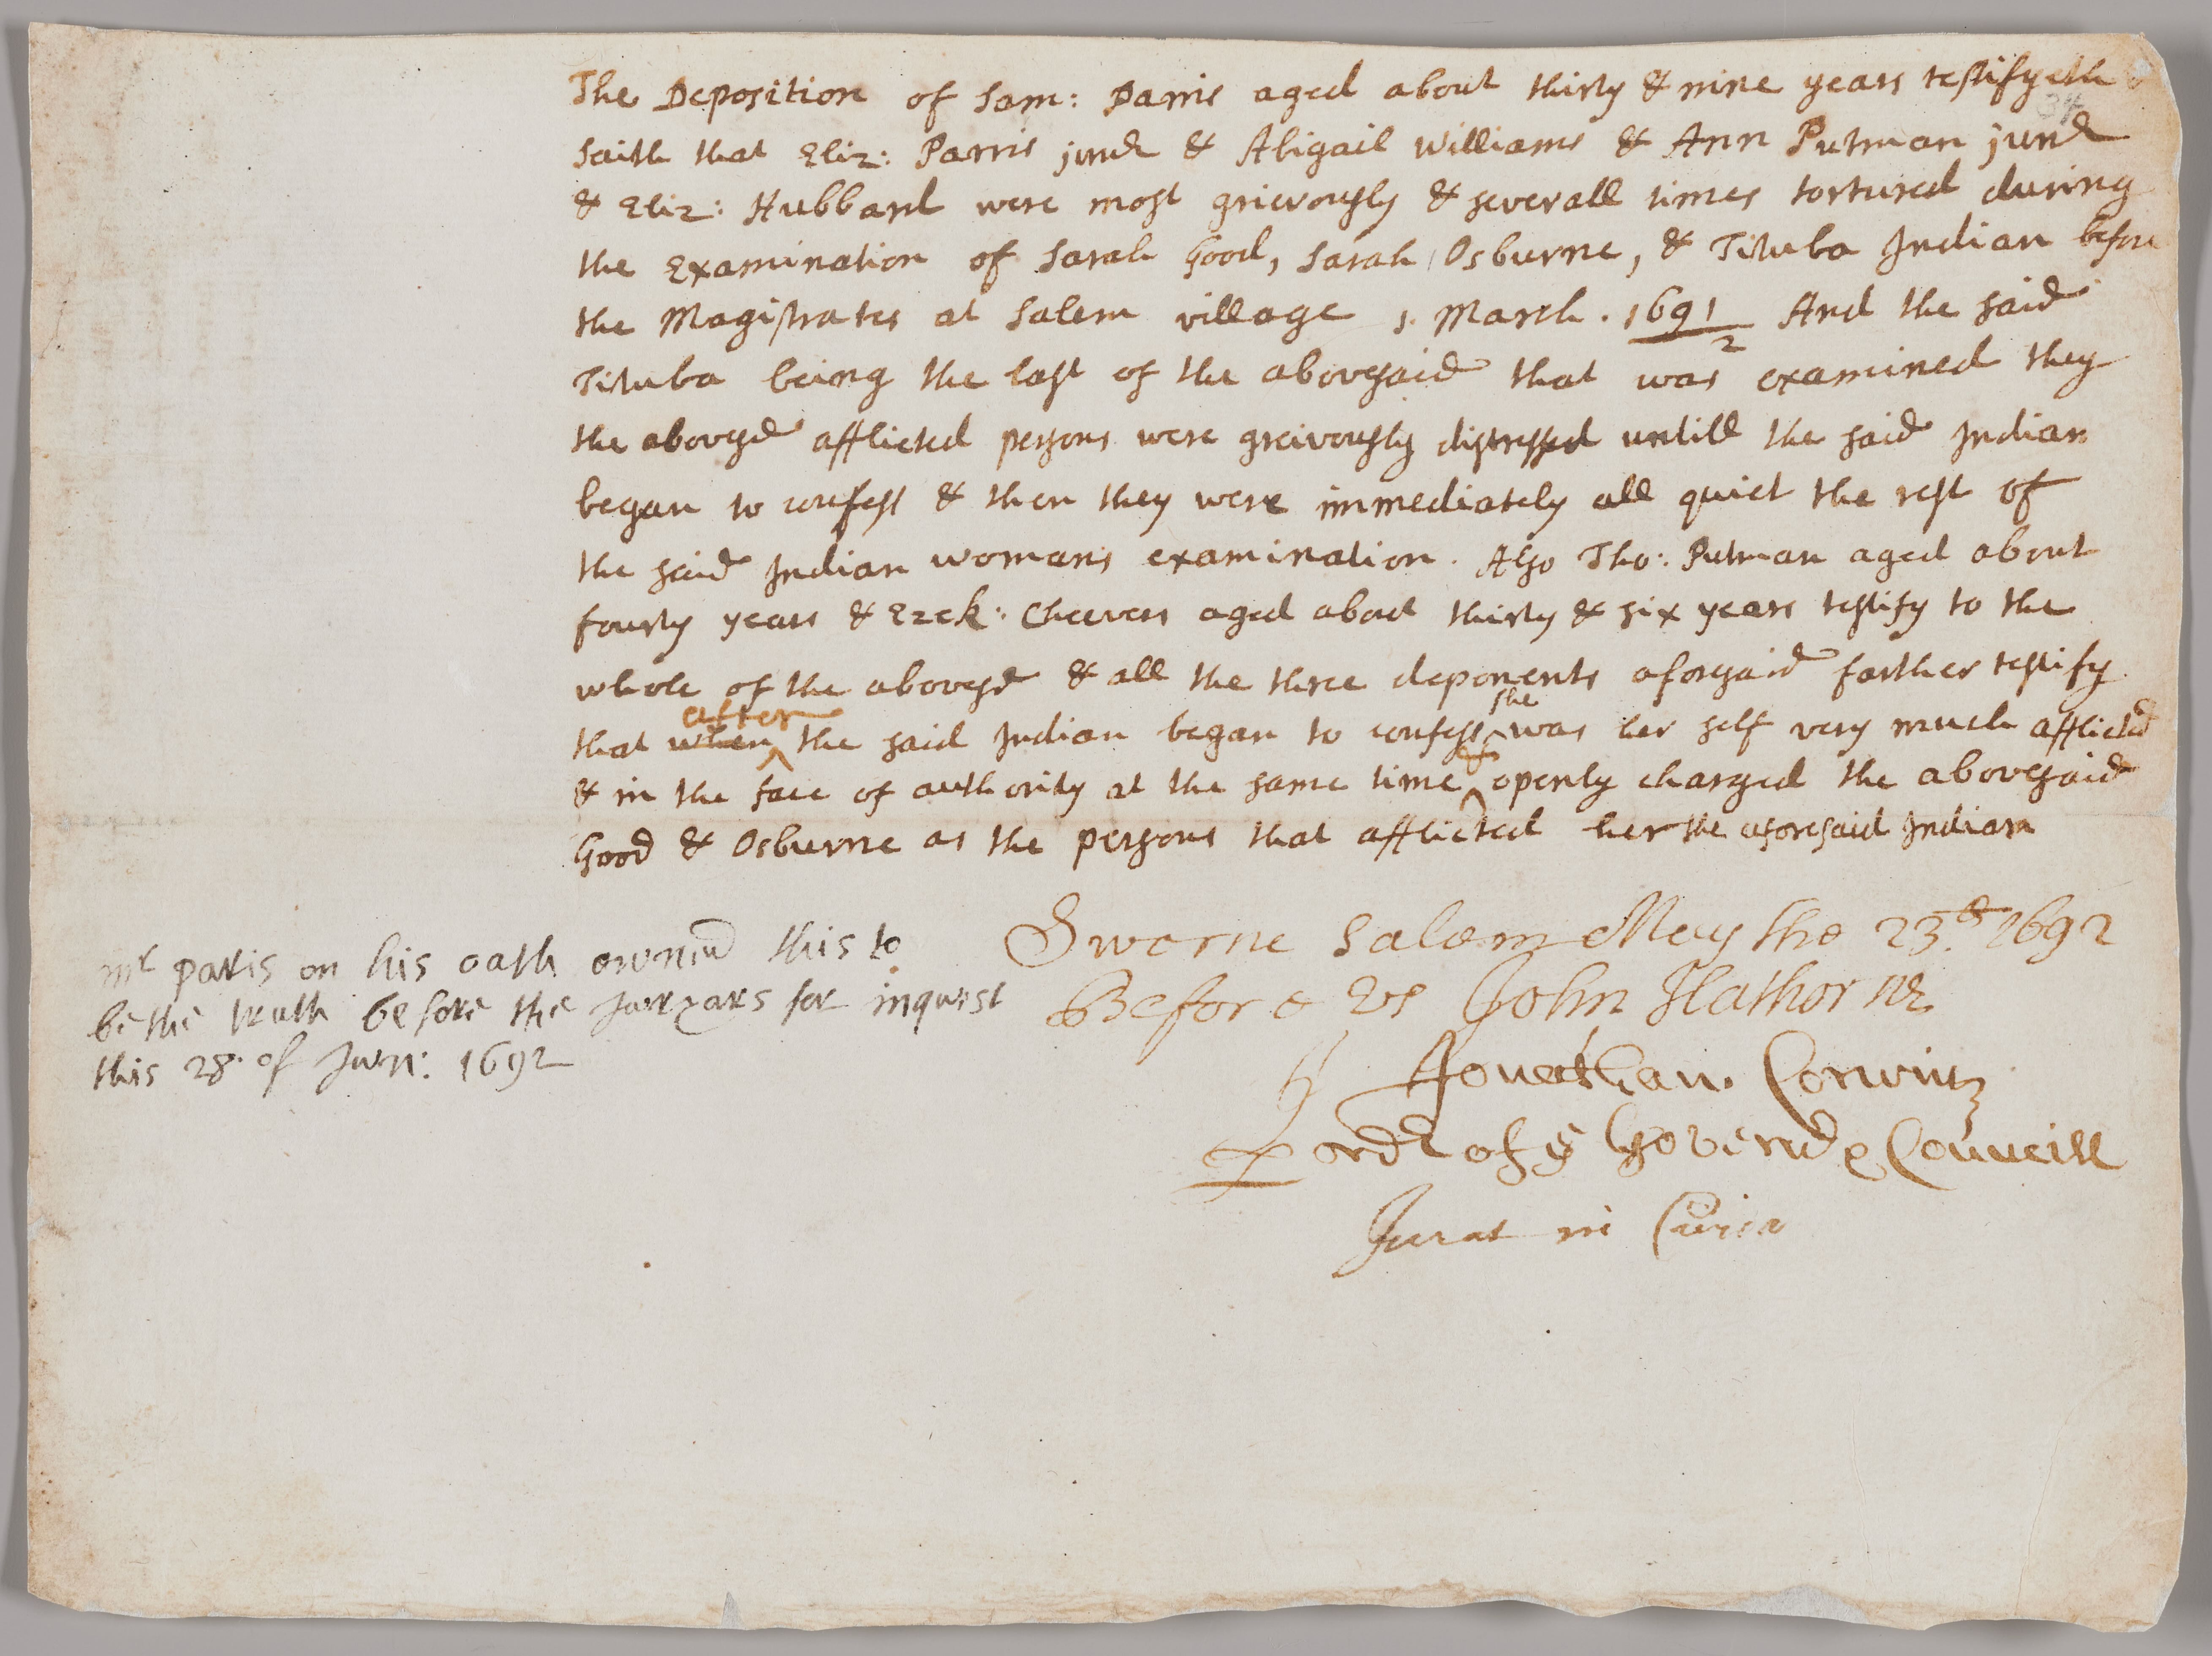 The Deposition of Sam: Parris aged about thirty & nine years testifyeth &
saith that Eliz: Parris junr & Abigail Williams & Ann Putman junr
& Eliz: Hubbard were most grievously & severall times tortured during
the Examination of Sarah Good, Sarah Osburne, & Tituba Indian before
the Magistrates at Salem village 1. March. 1691/2 And the said
Tituba being the last of the abovesaid that was examined they
the abovesd afflicted persons were greivously distressed untill the said Indian
began to confess & then they were immediately all quiet the rest of
the said Indian womans examination. Also Tho: Putman aged about
fourty years & Ezek: Cheevers aged about thirty & six years testify to the
whole of the abovesd & all the three deponents aforesaid farther testify
that when after the said Indian began to confess she was her self very much afflicted
& in the face of authority at the same time openly charged the abovesaid
Good & Osburne as the persons that afflicted her the aforesaid Indian
Sworne Salem May the 23d. 1692
Before Us John Hathorne
Jonathan. Corwin
ordr of ye Governr & Councill
Jurat in Curia
mr paris on his oath owned this to
be the truth before the Juryars for inquest
this 28. of Jun: 1692